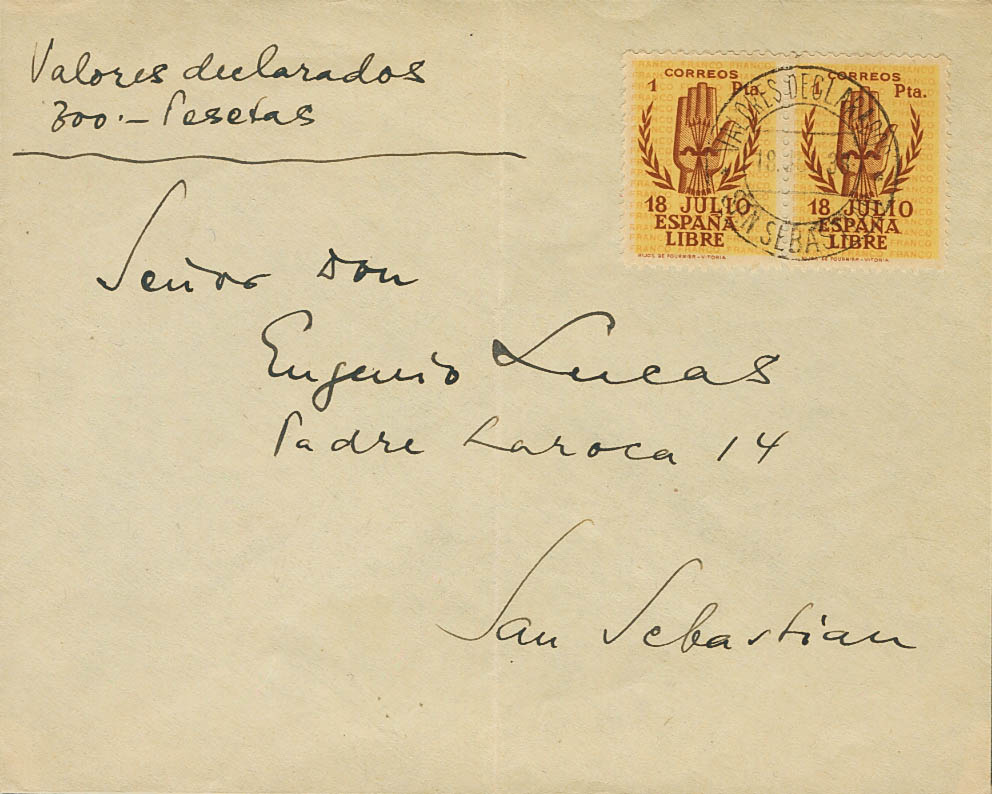 Valores declarados
300.- Pesetas
CORREOS
1 Pta.
18 JULIO
ESPAÑA
LIBRE
HIJOS DE FOURNIER - VITORIA
CORREOS
1 Pta.
18 JULIO
ESPAÑA
LIBRE
HIJOS DE FOURNIER - VITORIA
FRANCO FRANCO FRANCO
VALORES DECLARADOS
Señor Don
Eugenio Lucas
Padre Laroca 14
San Sebastian